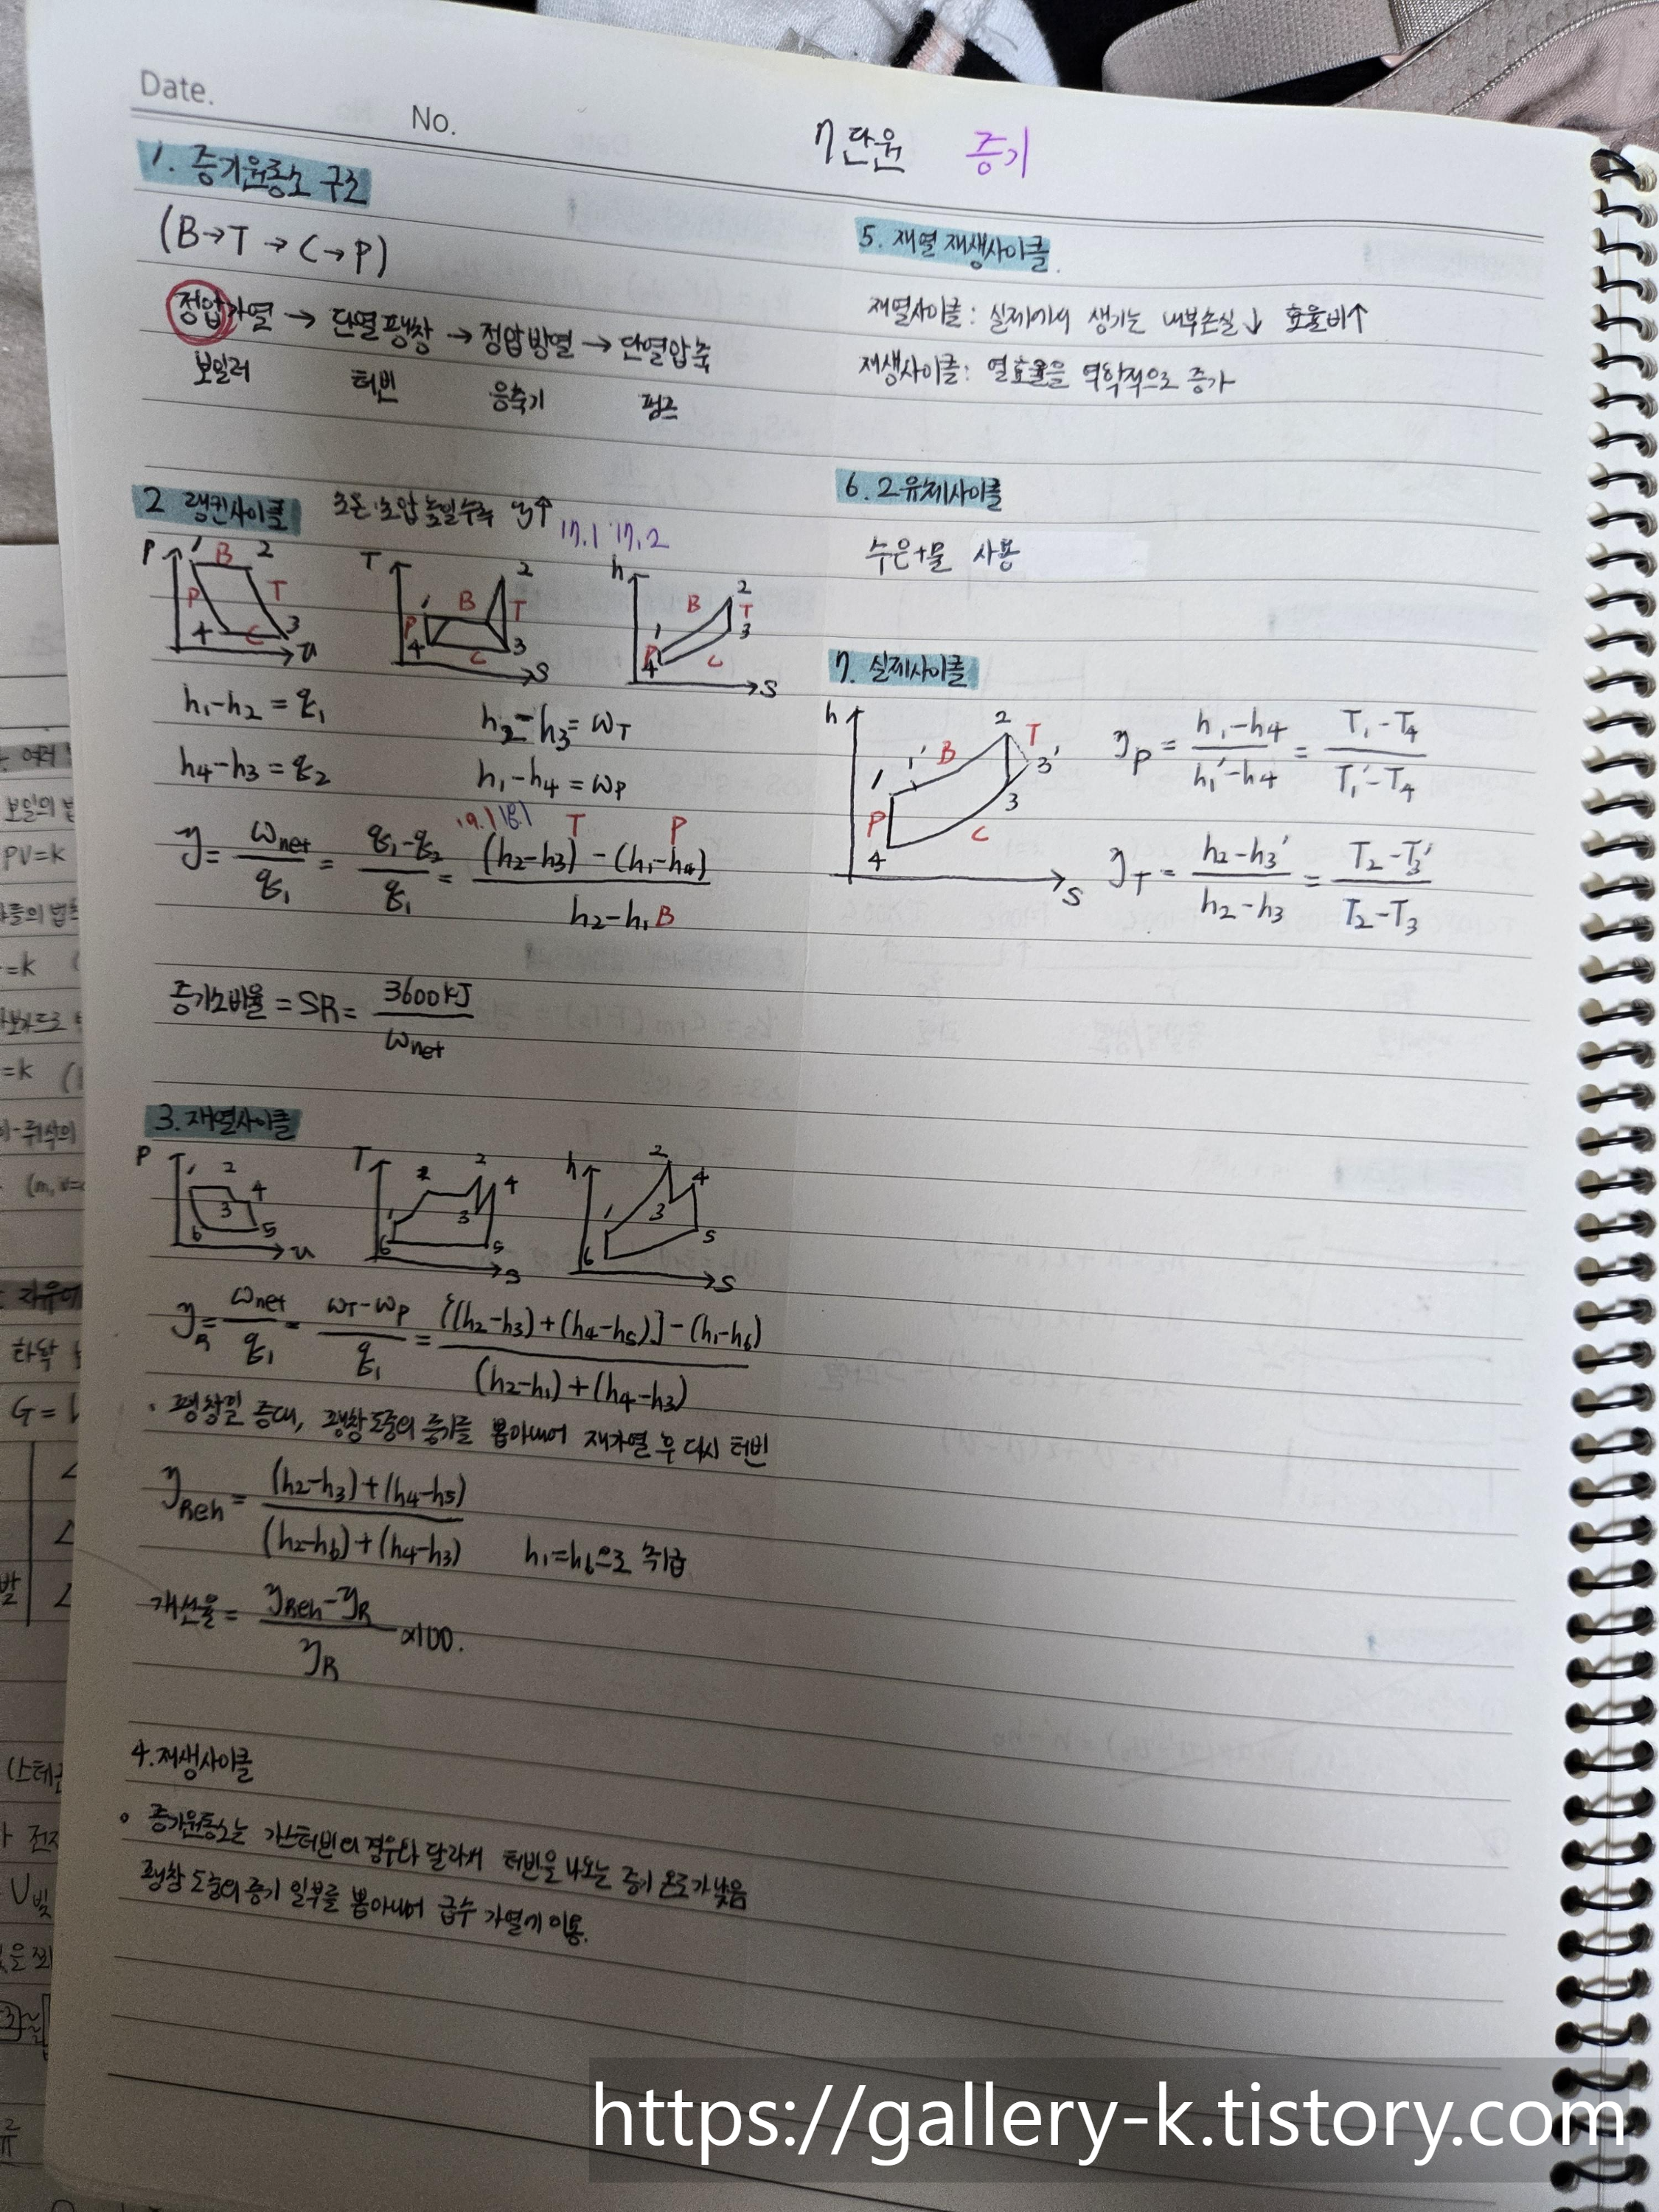 Date.
No.
7단원 증기
1. 증기원동소 구조
(B→T→C→P)
정압가열 → 단열팽창 → 정압방열 → 단열압축
보일러 터빈 응축기 펌프
2 랭킨사이클 초온·초압 높일수록 η↑
17.1 17.2
P 1 B 2 P T 4 C 3 v
T 1 B 2 P T 4 C 3 S
h 1 B 2 T P 3 4 C S
h₁-h₂ = q₁ h₂-h₃ = wT
h4-h3 = q₂ h₁-h4 = wP
19.1 18.1 T P
η = wnet/q₁ = q₁-q₂/q₁ = (h₂-h3) - (h₁-h4)/h₂-h₁ B
증기소비율 = SR = 3600kJ/wnet
3. 재열사이클
P 1 2 3 4 5 6 v
T 1 2 2 3 4 5 6 S
h 1 2 3 4 5 6 S
ηR = wnet/q₁ = wT-wP/q₁ = {(h₂-h3)+(h4-h5)] - (h₁-h6)/(h₂-h₁)+(h4-h3)
· 팽창일 증대, 팽창도중의 증기를 뽑아내어 재가열 후 다시 터빈
ηReh = (h₂-h3)+(h4-h5)/(h₂-h6)+(h4-h3) h₁=h6으로 취급
개선율 = ηReh-ηR/ηR ×100.
4. 재생사이클
∘ 증기원동소는 가스터빈의 경우와 달라서 터빈을 나오는 증기 온도가 낮음
팽창 도중의 증기 일부를 뽑아내어 급수 가열에 이용.
5. 재열 재생사이클
재열사이클: 실제에서 생기는 내부손실↓ 효율비↑
재생사이클: 열효율을 역학적으로 증가
6. 2유체사이클
수은+물 사용
7. 실제사이클
h 1 1' B 2 T 3' 3 P 4 C S
ηP = h₁-h4/h₁'-h4 = T₁-T4/T₁'-T4
ηT = h₂-h3'/h₂-h3 = T₂-T3'/T₂-T3
https://gallery-k.tistory.com